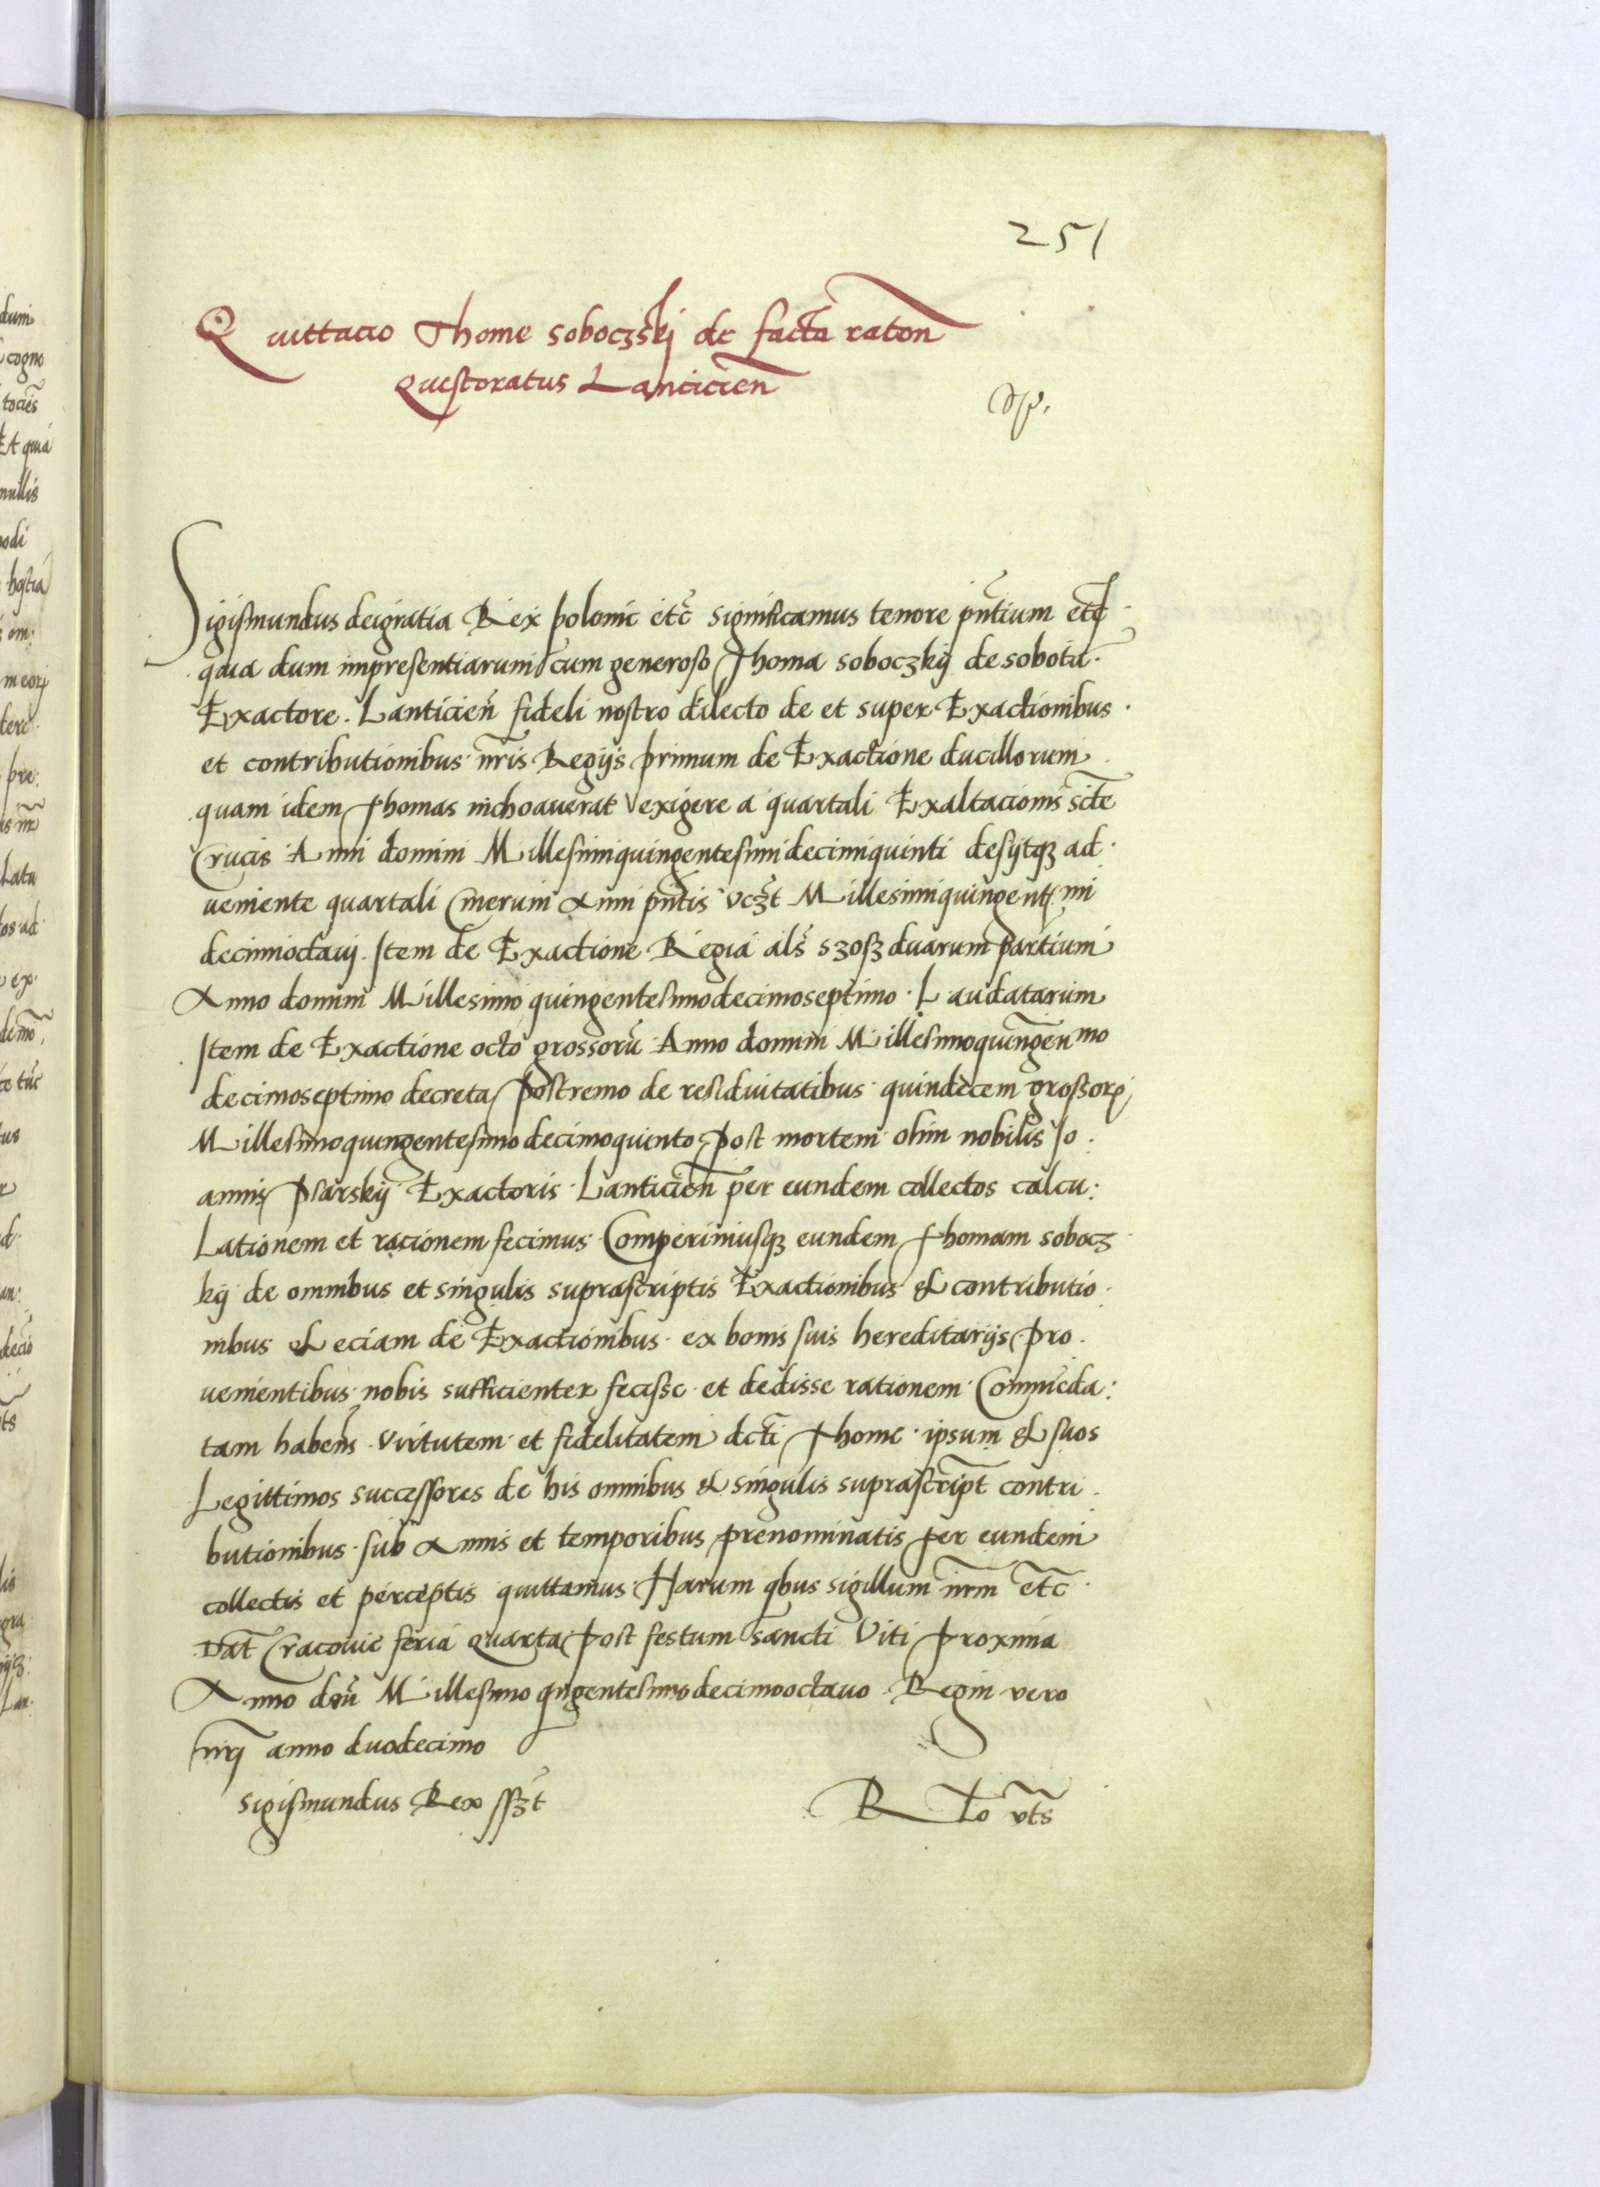 251
Quittacio Thome soboczskj de facta raton
Questoratus Lanticien
Sigismundus deigratia Rex polonie etc significamus tenore pntium etc
quia dum impresentiarum cum generoso Thoma soboczkij de sobota
Exactore Lanticien fideli nostro dilecto de et super Exactionibus
et contributionibus nris Regijs primum de Exactione ducillorum
quam idem Thomas inchoauerat exigere a quartali Exaltacionis scte
Crucis Anni domini Millesimiquingentesimidecimiquinti desijtqz ad
ueniente quartali Cinerum Anni pntis vczt Millesimiquingentmi
decimioctauj. Item de Exactione Regia als szosz duarum partium
Anno domini Millesimo quingentesimodecimoseptimo Laudatarum
Item de Exactione octo grossoru Anno domini Millesimoquingenmo
decimoseptimo decreta postremo de residuitatibus quindecem grossorum
Millesimoquingentesimodecimoquinto post mortem olim nobilis Jo
annis psarskij Exactoris Lanticien per eundem collectos calcu:
Lationem et racionem fecimus Comperimusqz eundem Thomam sobocz
kij de omnibus et singulis suprascriptis Exactionibus et contributio
nibus et eciam de Exactionibus ex bonis suis hereditarijs pro
uenientibus nobis sufficienter fecisse et dedisse rationem Commeda:
tam habens virtutem et fidelitatem dcti Thome ipsum et suos
Legittimos successores de his omnibus et singulis suprascript contri
butionibus sub Annis et temporibus prenominatis per eundem
collectis et perceptis quittamus Harum qbus sigillum nrm etc
Dat Cracouie feria quarta post festum sancti Viti proxima
Anno dni Millesimo qngentesimodecimooctauo Regni vero
nri anno duodecimo
Sigismundus Rex sszt
R Lo vts